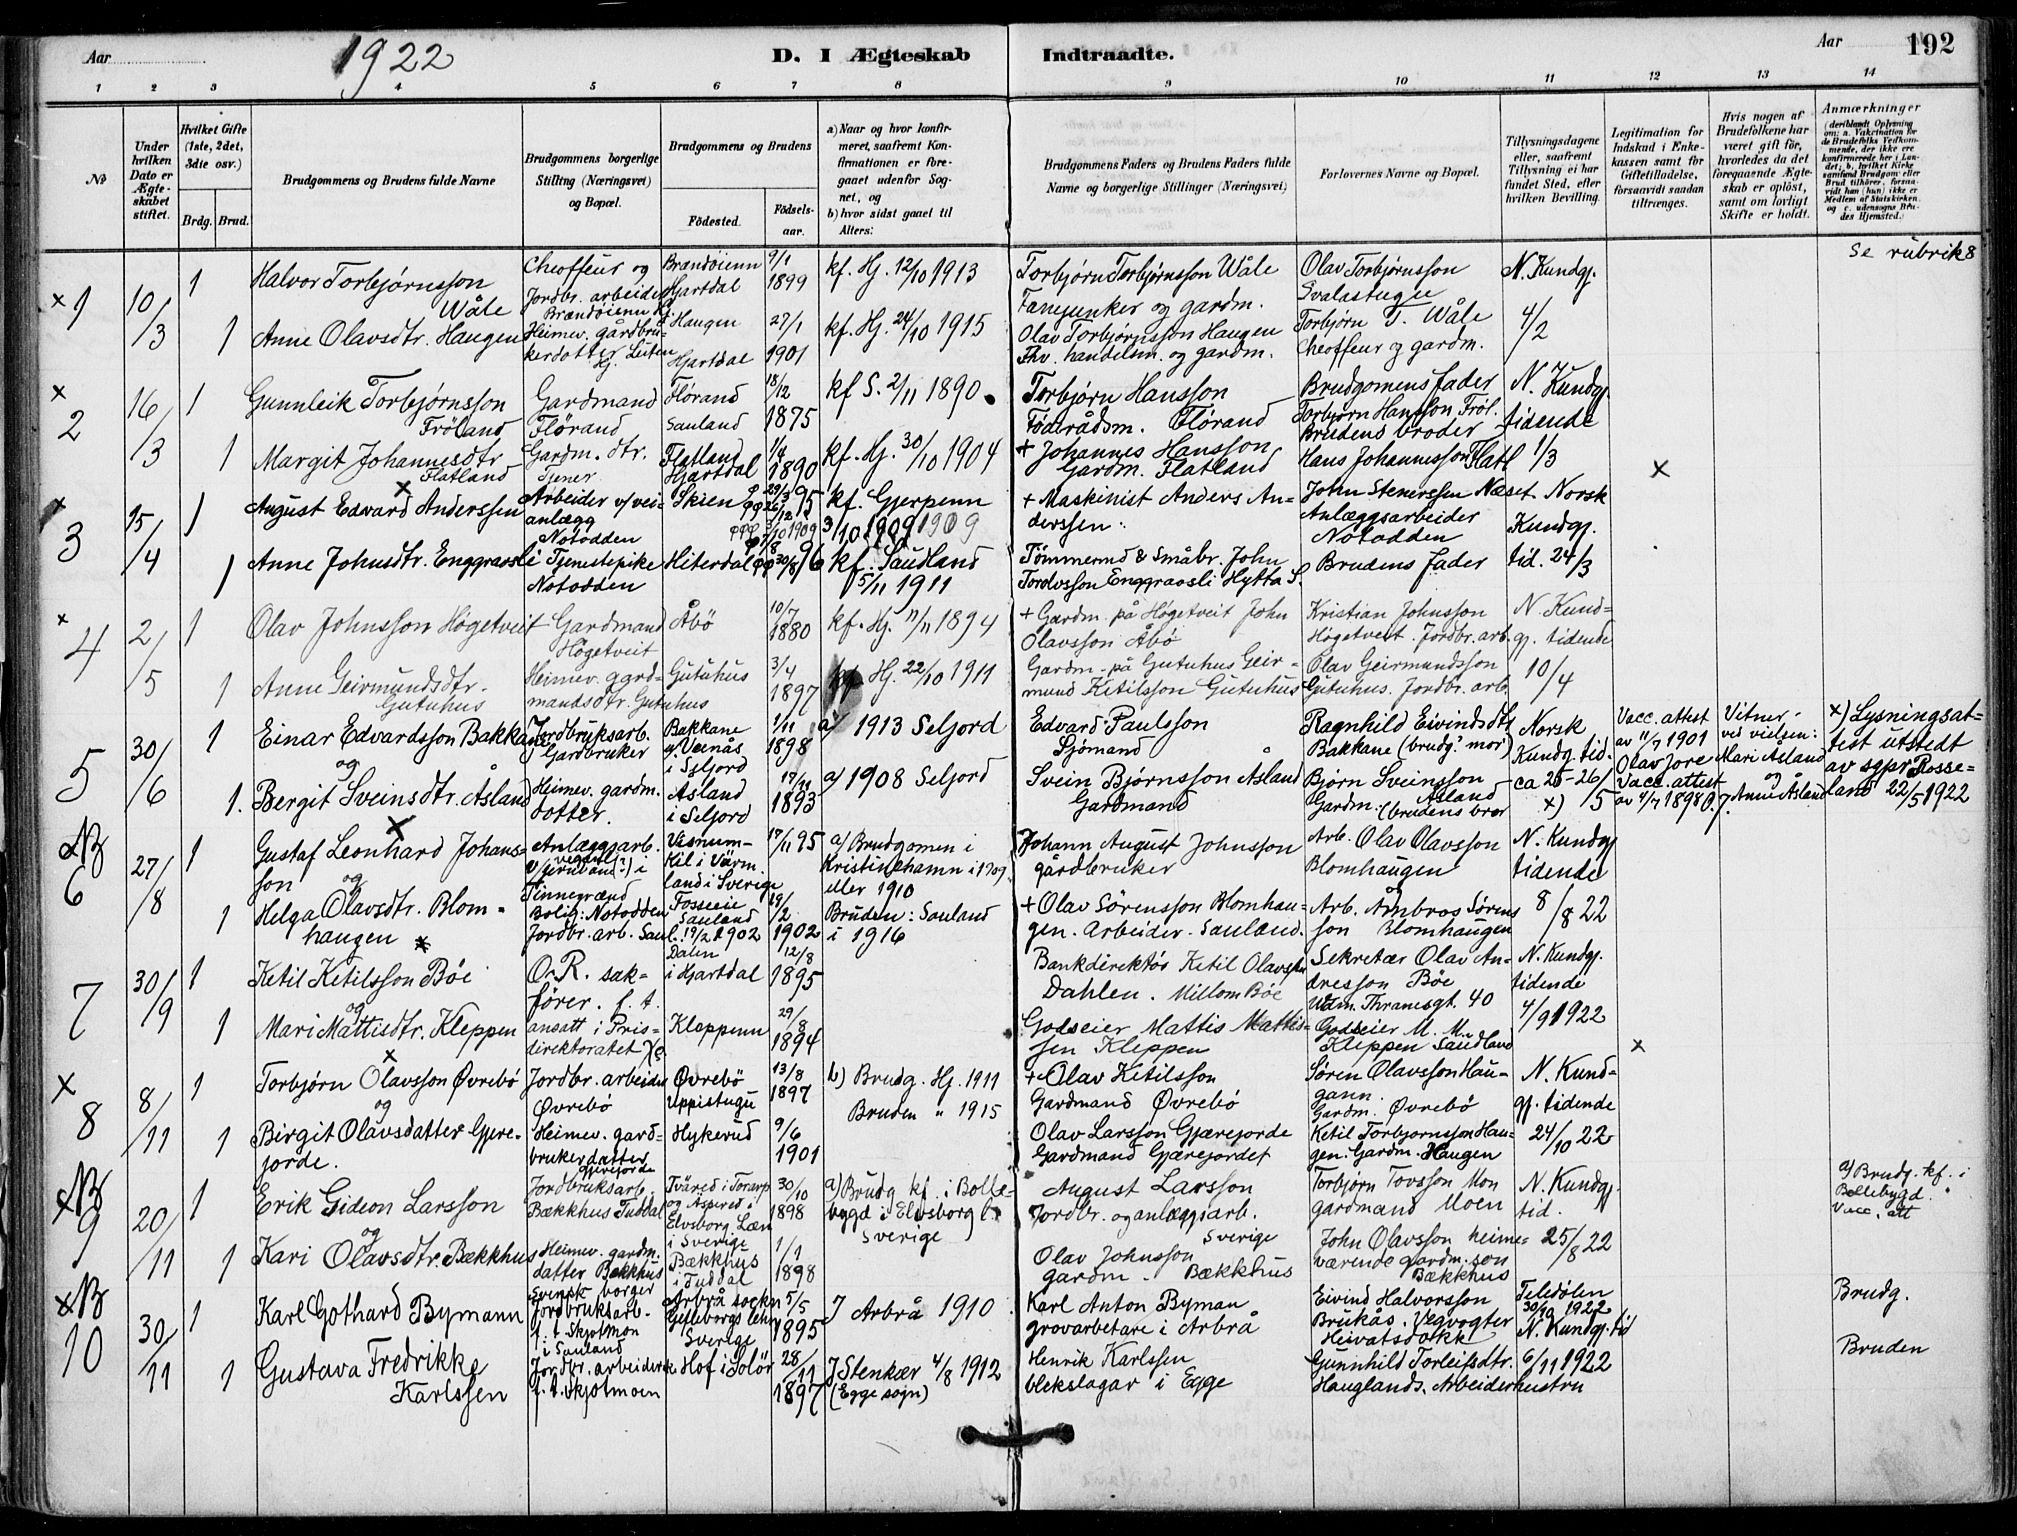 Aar
1922
D. I Ægteskab Indtraadte.
Aar
192
1 2 3 4 5 6 7 8 9 10 11 12 13 14
No
Under hvilken Dato er Ægteskabet stiftet.
Hvilket Gifte (1ste, 2det, 3die osv.)
Brdg. Brud.
Brudgommens og Brudens fulde Navne
Brudgommens borgerlige Stilling (Næringsvei) og Bopæl.
Brudgommens og Brudens
Fødested. Fødselsaar.
a) Naar og hvor konfirmeret, saafremt Konfirmationen er foregaaet udenfor Sognet, og
b) hvor sidst gaaet til Alters:
Brudgommens Faders og Brudens Faders fulde Navne og borgerlige Stillinger (Næringsvei)
Forlovernes Navne og Bopæl.
Tillysningsdagene eller, saafremt Tillysning ei har fundet Sted, efter hvilken Bevilling.
Legitimation for Indskud i Enkekassen samt for Giftetilladelse, forsaavidt saadan tiltrænges.
Hvis nogen af Brudefolkene har været gift før, hvorledes da det foregaaende Ægteskab er opløst, samt om lovligt Skifte er holdt.
Anmærkninger
(deriblandt Oplysning om: a. Vakcination for de Brudefolks Vedkommende, der ikke ere konfirmerede her i Landet, b. hvilket Kirkesamfund Brudgom eller Brud tilhører, forsaavidt han (hun) ikke er Medlem af Statskirken, og c. udensogns Brudes Hjemsted.)
x 1
10/3
1
Halvor Torbjørnsson
Wåle
Cheoffeur og
Jordbr. arbeider
Brandöienn Hj.
Brandöienn
Hjartdal
9/1
1899
kf. Hj. 12/10 1913
Torbjørn Torbjørnsson Wåle
Fanejunker og gardm.
Olav Torbjørnsson
Svalastugu
N. Kundgj.
Se rubrik 8
1
Anne Olavsdtr. Haugen
Heimev. gårdbru-
kerdotter
Haugen
Hjartdal
27/1
1901
kf. Hj. 24/10 1915
Olav Torbjørnsson Haugen
Fhv. handelsm. og gardm.
Torbjørn T. Wåle
Cheoffeur og gardm.
4/2
x 2
16/3
1
Gunnleik Torbjørnsson
Fröland
Gardmand
Flørand
Flørand
Sauland
18/12
1875
kf S. 2/11 1890.
Torbjørn Hansson
Föderådsm. Flørand
Brudgomens fader
Torbjørn Hansson Fröl.
N. Kundgj.
tidende
1
Margit Johannesdtr
Flatland
Gardm. dtr.
Tjener
Flatland
Hjartdal
1/4
1890
kf. Hj. 30/10 1904
+ Johannes Hansson
Gardm. Flatland
Brudens broder
Hans Johannesson Flatl
1/3
x
x 3
15/4
1
August Edvard Anderssen
Arbeider v/ vei-
anlægg
Notodden
Skien
29/3 95
kf. Gjerpenn
3/10 1909 1909
+ Maskinist Anders An-
derssen.
John Stenerssen Næset
Anlæggsarbeider
Notodden
Norsk
Kundgj.
1
Anne Johnsdtr. Enggraasli
Tjenestepike
Notodden
Hiterdal
30/8 96
kf. Saudland
5/11 1911
Tömmermd & Småbr. John
Tordvsson Enggraasli Hytta S.
Brudens fader
tid. 24/3
x 4
2/5
1
Olav Johnsson Högetveit
Gardmand
Högetveit
Åbö
10/7
1880
kf. Hj. 11/11 1894
+ Gardm. på Högetveit John
Olavsson Åbö
Kristian Johnsson
Högetveit. Jordbr. arb.
N. Kund-
gj. tidende
1
Anne Geirmundsdtr.
Gutuhus
Heimev. gard-
mandsdtr. Gutuhus
Gutuhus
3/4
1897
kf Hj. 22/10 1911
Gardm. på Gutuhus Geir-
mund Ketilsson Gutuhus
Olav Geirmundsson
Gutuhus. Jordbr. arb.
10/4
5
30/6
1
Einar Edvardsson Bakkane
og
Jordbruksarb.
Gardbruker
Bakkane
i Seljord
1/11
1898
a) 1913 Seljord
Edvard Paulsson
Sjömand
Ragnhild Eivindsdtr
Bakkane (brudg. mor)
Norsk
Kundg. tid.
Vacc. attest
av 11/7 1901
Olav Jore
Vitner
ved vielsen:
Mari Åsland
x) Lysningsat-
test utstedt
av sgpr Rosse-
land 22/5 1922
1.
Bergit Sveinsdtr. Åsland
Heimev. gardm.
dotter.
Åsland
i Seljord
17/11
1893
a) 1908 Seljord
Svein Bjørnsson Åsland
Gardmand
Bjørn Sveinsson
Åsland
Gardm. (brudens bror
ca 25-26/5
x)
Vacc. attest
av 4/7 1898
og
Anne Åsland
NB 6
27/8
1
Gustaf Leonhard Johans-
son
og
Anlæggsarb.
i
Tinnegrænd
Bolig: Notodden
Visnum-
Kil i Värm
land i Sverige
17/11 95
a) Brudgomen i
Kristinehamn i 1909
eller 1910
Johann August Johnsson
gårdbruker
Arb. Olav Olavsson
Blomhaugen
og
N. Kundgj
tidende
1
Helga Olavsdtr. Blom-
haugen
Jordbr. arb. Saul.
Fosseie
Sauland
19/2 1902
19/2
1902
Bruden: Sauland
i 1916
+ Olav Sörensson Blomhau-
gen. Arbeider. Sauland.
Arb. Ambros Sörens
son Blomhaugen
8/8 22
7
30/9
1
Ketil Ketilsson Böe
og
O. R. sak-
förer. f. t.
ansatt i Pris-
direktoratet
Dalen
i Hjartdal
12/8
1895
Bankdirektör Ketil Olavssn
Dahlen. Millom Böe
Sekretær Olav An-
dresson Böe
Thranesgt. 40
N. Kundgj.
tidende
1
Mari Mattisdtr. Kleppen
Kleppenn
29/8
1894
Godseier Mattis Mattis-
sen Kleppen
Godseier M. M.
Kleppen Saudland
4/9 1922
x
x 8
8/11
1
Torbjørn Olavsson Øvrebö
og
Jordbr. arbeider
Øvrebö
Øvrebö
Uppistugu
13/8
1897
b) Brudg. Hj. 1911
+ Olav Ketilsson
Gardmand Øvrebö
Søren Olavsson Hau-
gann.
Gardm. Øvrebö
N. Kund-
gj. tidende
1
Birgit Olavsdatter Gjere-
jorde.
Heimev. gard-
brukerdatter
Gjerejorde
Hykerud
9/6
1901
Bruden " 1915
Olav Larsson Gjærejorde
Gardmand Gjærejordet
Ketil Torbjornsson Hau-
gen. Gardm. Haugen
24/10 22
xNB 9
20/11
1
Erik Gideon Larsson
og
Jordbruksarb.
Bækkhus Tuddal
Tväred i Torarp
og Aspered i
Elvsborg Læn
i Sverige
30/10
1898
a) Brudg kf. i Bolle-
bygd i Elvsborg l.
Sverige
August Larsson
Jordbr. og anlæggsarb.
Sverige
Torbjørn Tovsson Mon
gardmand Moen
N. Kundgj.
tid.
a) Brudg. kf. i
Bollebygd.
Vacc. att
1
Kari Olavsdtr. Bækkhus
Heimev. gardm.
datter Bækkhus
Bækkhus
i Tuddal
1/1
1898
Olav Johnsson
gardm. Bækkhus
John Olavsson heime-
værende gardm. son
Bækkhus
25/8 22
xNB 10
30/11
1
Karl Gothard Bymann
Svensk borger
Jordbruksarb.
f. t. Skjotmon
i Sauland
Arbrå sockn
Gefleborgs lehn
Sverige
5/5
1895
I Arbrå 1910
Karl Anton Byman
grovarbetare i Arbrå
Eivind Halvorsson
Brukås. Vegvogter
Teledölen
30/10 1922
N. Kundgj. tid
Brudg.
1
Gustava Fredrikke
Karlssen
Jordbr. arbeiderk
f. t. Skjotmoen
Hof i Solör
28/11
1897
I Stenkær 4/8 1912
(Egge sogn)
Henrik Karlssen
blekslagar i Egge
Gunnhild Torleifsdtr.
Hauglands. Arbeiderhustru
6/11 1922
Bruden